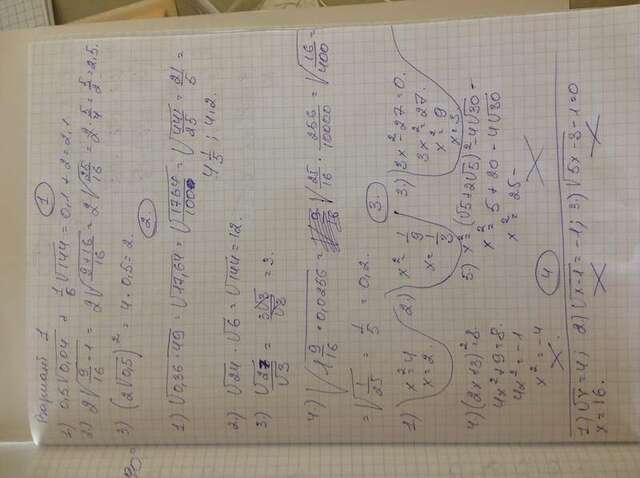 Вариант 1
①
1) 0,5√0,04 + 1/6 √144 = 0,1 + 2 = 2.1.
2) 2√(9/16 - 1) = 2√((9+16)/16) = 2√(25/16) = 2·5/4 = 5/2 = 2.5.
3) (2√0,5)² = 4 · 0,5 = 2.
②
1) √(0,36 · 49) = √17,64 = √(1764/100) = √(441/25) = 21/5 =
4 1/5 ; 4.2.
2) √24 · √6 = √144 = 12.
3) √27/√3 = 3√3/√3 = 3.
4) √(1 9/16 · 0,0256) = √(25/16 · 256/10000) = √(16/400) =
= √(1/25) = 1/5 = 0,2.
③
1) x² = 4
x = 2.
2) x² = 1/9
x = 1/3
3) 3x² - 27 = 0.
3x² = 27.
x² = 9
x = 3
4) (2x+3)² = 8
4x² + 9 = 8.
4x² = -1
x² = -4
5) x² = (√5+2√5)² - 4√30 -
x² = 5 + 20 - 4√30
x² = 25 -
④
1) √x = 4; 2) √(x-1) = -1; 3) √(5x-3) - 1 = 0
x = 16.